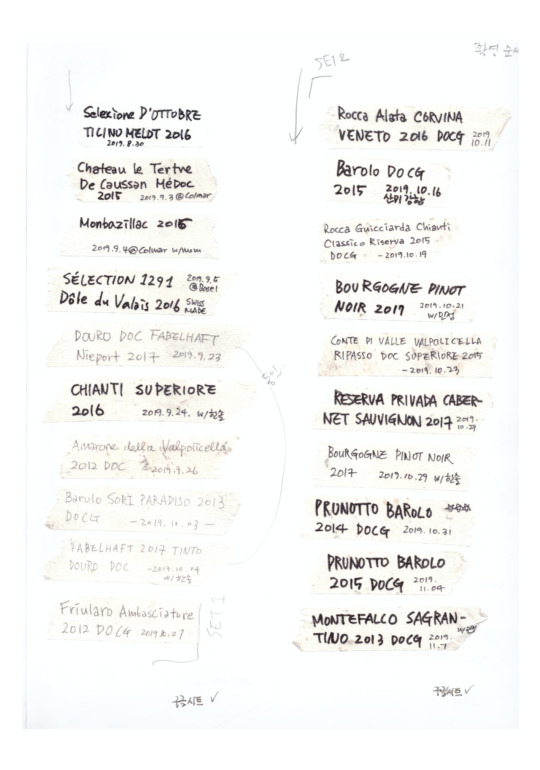 SET2
Selezione D'OTTOBRE
TICINO MELOT 2016
2019.8.30
Chateau le Tertre
De Caussan MÉDOC
2015 2019.9.3 @Colmar
Monbazillac 2015
2019.9.4@Colmar w/mom
SÉLECTION 1291 2019.9.5 @Basel
Dôle du Valais 2016 SWISS MADE
DOURO DOC FABELHAFT
Nieport 2017 2019.9.23
CHIANTI SUPERIORE
2016 2019.9.24. w/한솔
Amarone della Valpolicella
2012 DOC 2019.9.26
Barolo SORÌ PARADISO 2013
DOCG -2019.10.03-
FABELHAFT 2017 TINTO
DOURO DOC -2019.10.04
w/한솔
Friularo Ambasciatore
2012 DOCG 2019.10.07
SET 1
Rocca Alata CORVINA
VENETO 2016 DOCG 2019 10.11
Barolo DOCG
2015 2019.10.16
Rocca Guicciarda Chianti
Classico Riserva 2015
DOCG -2019.10.19
BOURGOGNE PINOT
NOIR 2017 2019.10.21
CONTE DI VALLE VALPOLICELLA
RIPASSO DOC SUPERIORE 2015
-2019.10.23
RESERVA PRIVADA CABER-
NET SAUVIGNON 2017 2019.
BOURGOGNE PINOT NOIR
2017 2019.10.29 w/한솔
PRUNOTTO BAROLO
2014 DOCG 2019.10.31
PRUNOTTO BAROLO
2015 DOCG 2019.
11.04
MONTEFALCO SAGRAN-
TINO 2013 DOCG 2019.
11.7